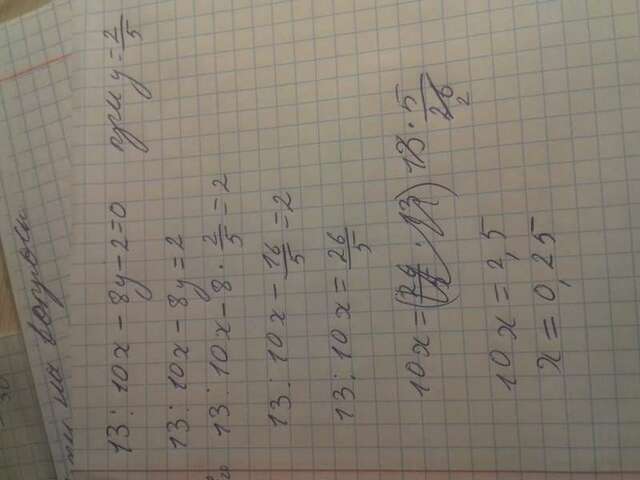 30
ти на вопросы
13 : 10x - 8y - 2 = 0 при y = 2/5
13 : 10x - 8y = 2
13 : 10x - 8 · 2/5 = 2
13 : 10x - 16/5 = 2
13 : 10x = 26/5
10x = 13 · 5/26 2
10x = 2,5
x = 0,25